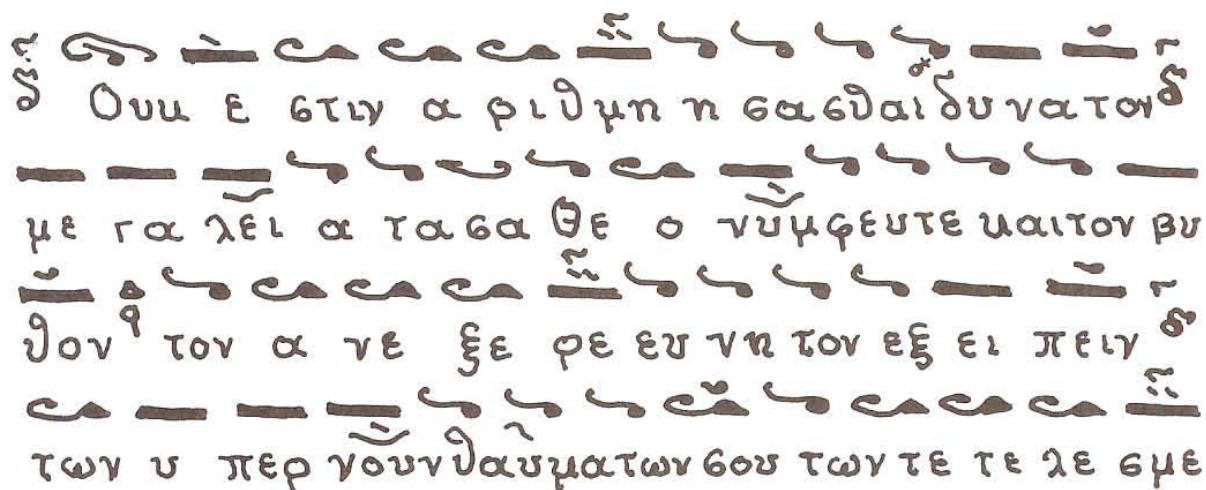 Ουκ ε στιν α ριθ μη η σασθαι δυ να τον
με γα λει α τα σα Θε ο νυμφευτε και τον βυ
θον τον α νε ξε ρε ευ νη τον εξ ει πειν
των υ περ νουν θαυματων σου των τε τε λε σμε